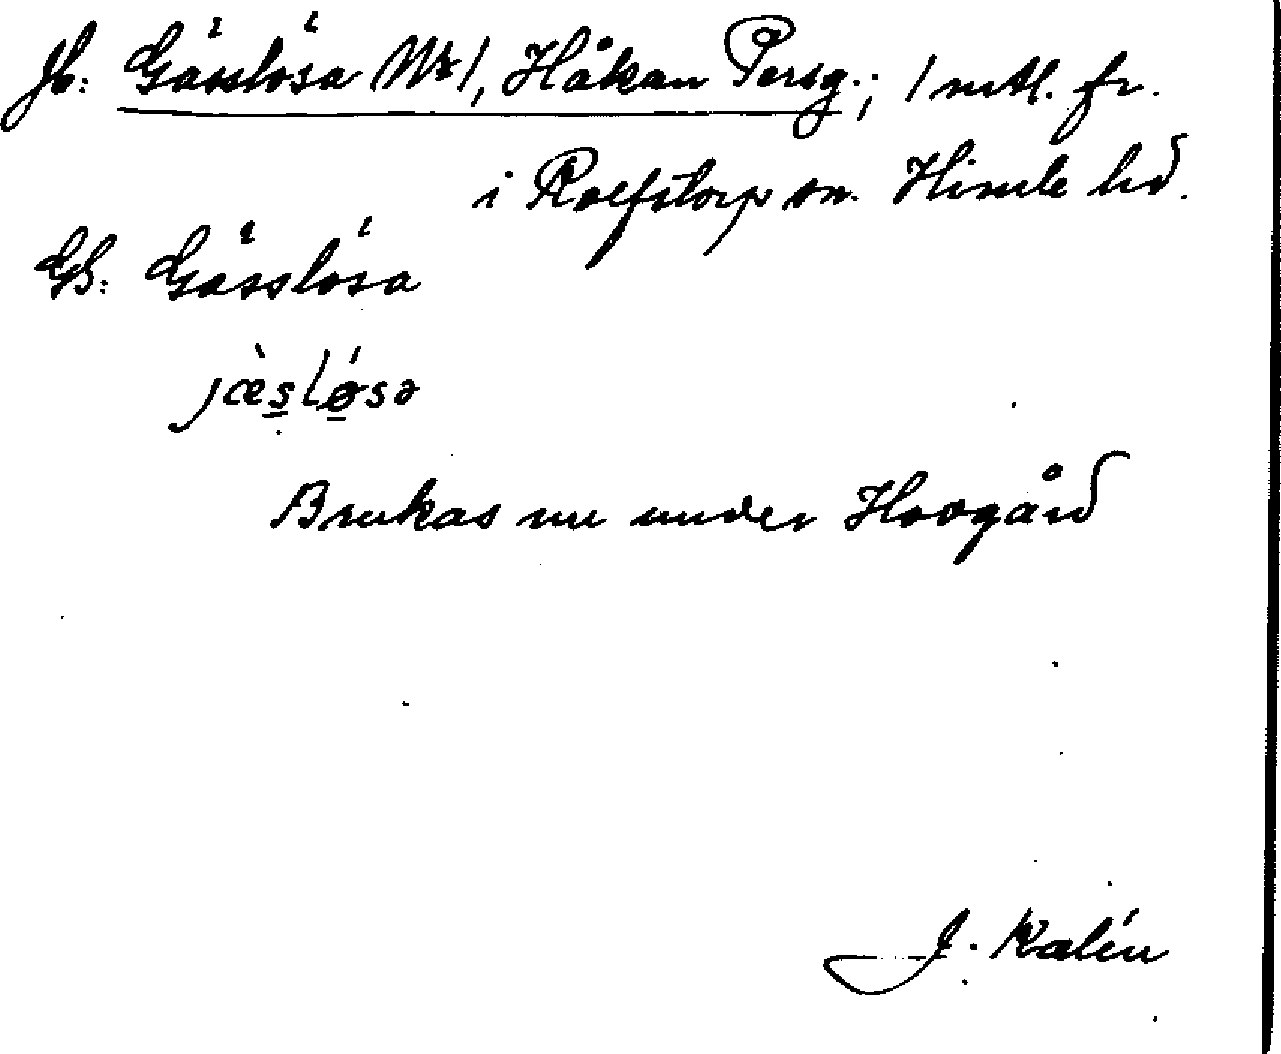 Jb: Gässlösa Nr 1, Håkan Persg.; 1 mtl. fr.
i Rolfstorp sn. Himle hd.
GS: Gässlösa
jæ̀slǿsə
Brukas nu under Hovgård
J. Kalén